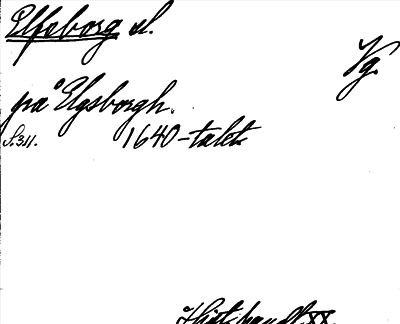 Elfsborg sl.
Vg.
på Elgsborgh.
S.311. 1640-talet
Hist. handl. XX.